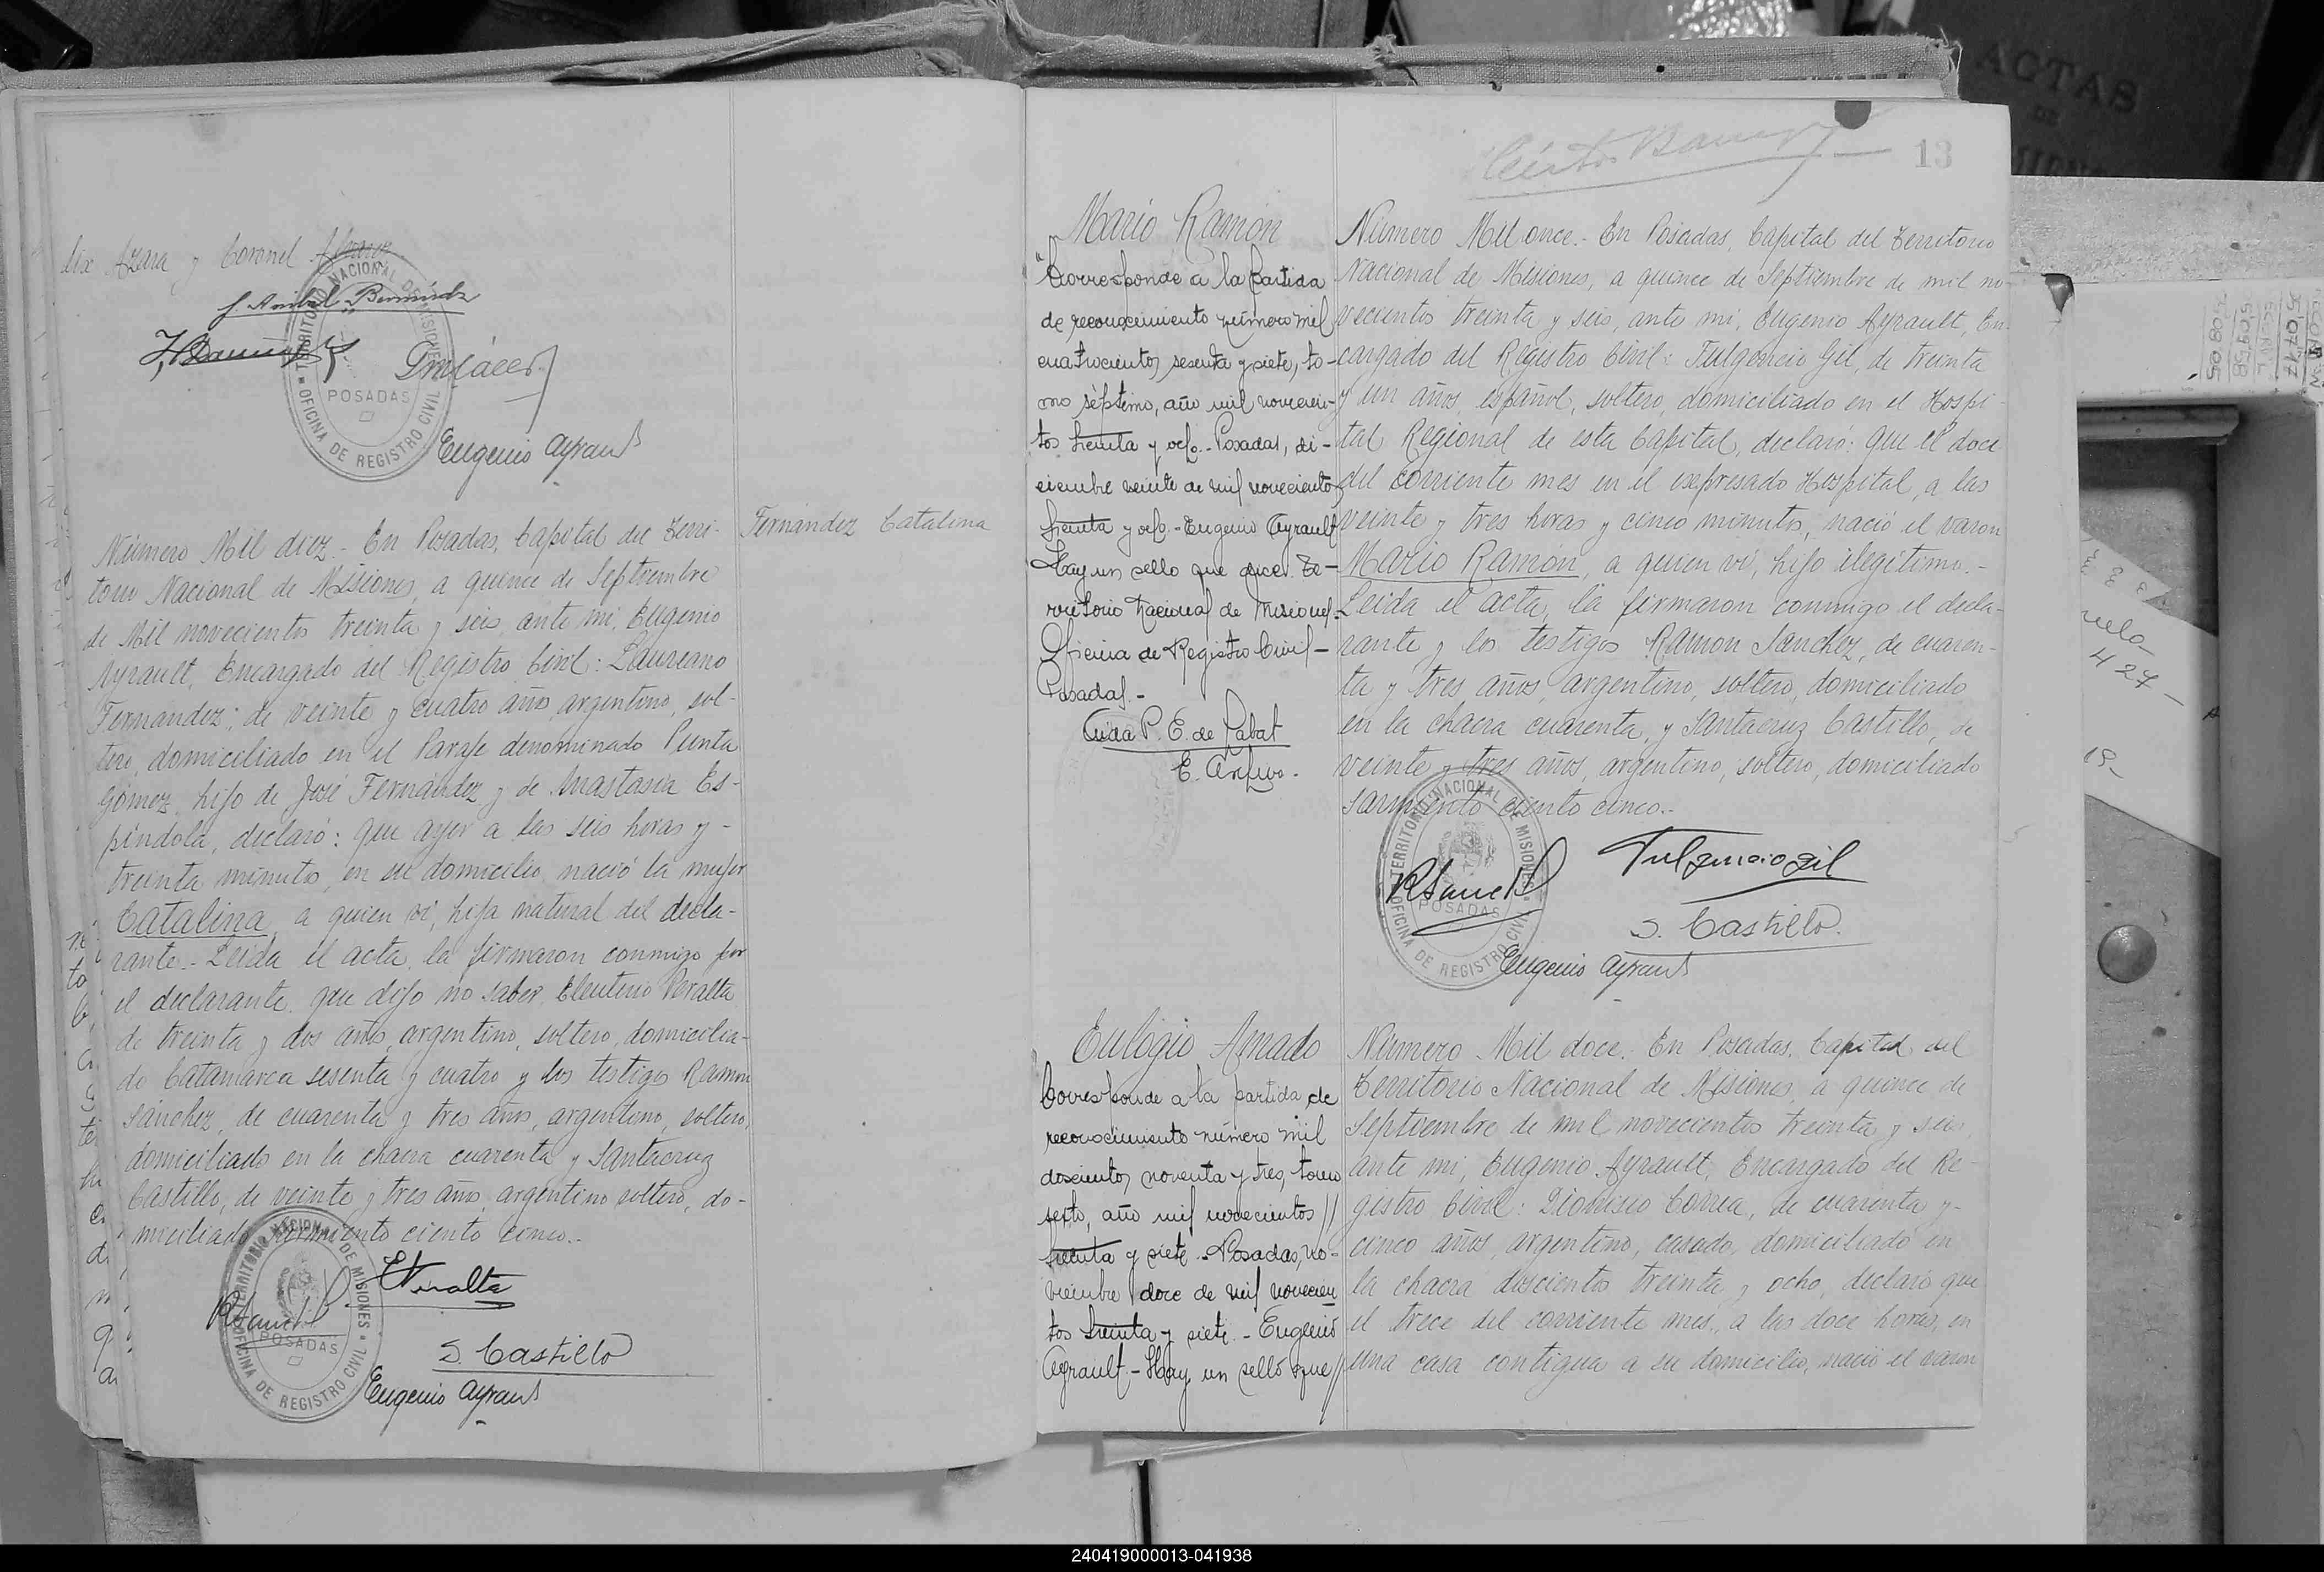 lix Azara y Coronel Alvarez
J. Anibal Bermúdez
TERRITORIO NACIONAL DE MISIONES
POSADAS
OFICINA DE REGISTRO CIVIL
Eugenio Ayrault
Número Mil diez.- En Posadas, Capital del Terri-
torio Nacional de Misiones, a quince de Septiembre
de Mil novecientos treinta y seis, ante mi, Eugenio
Ayrault, Encargado del Registro Civil: Laureano
Fernández; de veinte y cuatro años, argentino, sol-
tero, domiciliado en el Paraje denominado Punta
Gómez, hijo de José Fernández y de Anastasia Es-
píndola, declaró: que ayer a las seis horas y -
treinta minutos, en su domicilio, nació la mujer
Catalina, a quien ví, hija natural del decla-
rante.- Leída el acta, la firmaron conmigo por
el declarante, que dijo no saber, Eleuterio Peralta
de treinta y dos años, argentino, soltero, domicilia-
do Catamarca sesenta y cuatro y los testigos Ramon
Sánchez, de cuarenta y tres años, argentino, soltero,
domiciliado en la chacra cuarenta y Santacruz
Castillo, de veinte y tres años, argentino soltero, do-
miciliado Sarmiento ciento cinco.-
Fernández Catalina
E Peralta
TERRITORIO NACIONAL DE MISIONES
POSADAS
OFICINA DE REGISTRO CIVIL
S. Castillo
Eugenio Ayrault
13
Mario Ramón
"Corresponde a la partida
de reconocimiento número mil
cuatrocientos sesenta y siete, to-
mo séptimo, año mil novecien-
tos treinta y ocho.- Posadas, di-
ciembre veinte de mil novecientos
treinta y ocho.- Eugenio Ayrault
Hay un sello que dice: Te-
rritorio Nacional de Misiones.
Oficina de Registro Civil -
Posadas.-
Aida P. E. de Labat
E. Archivo.
Número Mil once.- En Posadas, Capital del Territorio
Nacional de Misiones, a quince de Septiembre de mil no-
vecientos treinta y seis, ante mi, Eugenio Ayrault, En-
cargado del Registro Civil: Fulgencio Gil, de treinta
y un años, español, soltero, domiciliado en el Hospi-
tal Regional de esta Capital, declaró: que el doce
del corriente mes en el expresado Hospital, a las
veinte y tres horas y cinco minutos, nació el varon
Mario Ramón, a quien ví, hijo ilegítimo.-
Leída el acta, la firmaron conmigo el decla-
rante y los testigos Ramon Sánchez, de cuaren-
ta y tres años, argentino, soltero, domiciliado
en la chacra cuarenta, y Santacruz Castillo, de
veinte y tres años, argentino, soltero, domiciliado
Sarmiento ciento cinco.-
TERRITORIO NACIONAL DE MISIONES
POSADAS
OFICINA DE REGISTRO CIVIL
Fulgencio Gil
S. Castillo.
Eugenio Ayrault
Eulogio Amado
Corresponde a la partida de
reconocimiento número mil
doscientos noventa y tres, tomo
sexto, año mil novecientos //
treinta y siete.- Posadas, no-
viembre doce de mil novecien
tos treinta y siete.- Eugenio
Ayrault.- Hay un sello que //
Número Mil doce. En Posadas, Capital del
Territorio Nacional de Misiones, a quince de
Septiembre de mil novecientos treinta y seis,
ante mi, Eugenio Ayrault, Encargado del Re-
gistro Civil: Dionisio Correa, de cuarenta y-
cinco años, argentino, casado, domiciliado en
la chacra doscientos treinta y ocho, declaró que
el trece del corriente mes, a las doce horas, en
una casa contigua a su domicilio, nació el varon
ACTAS
DE
240419000013-041938